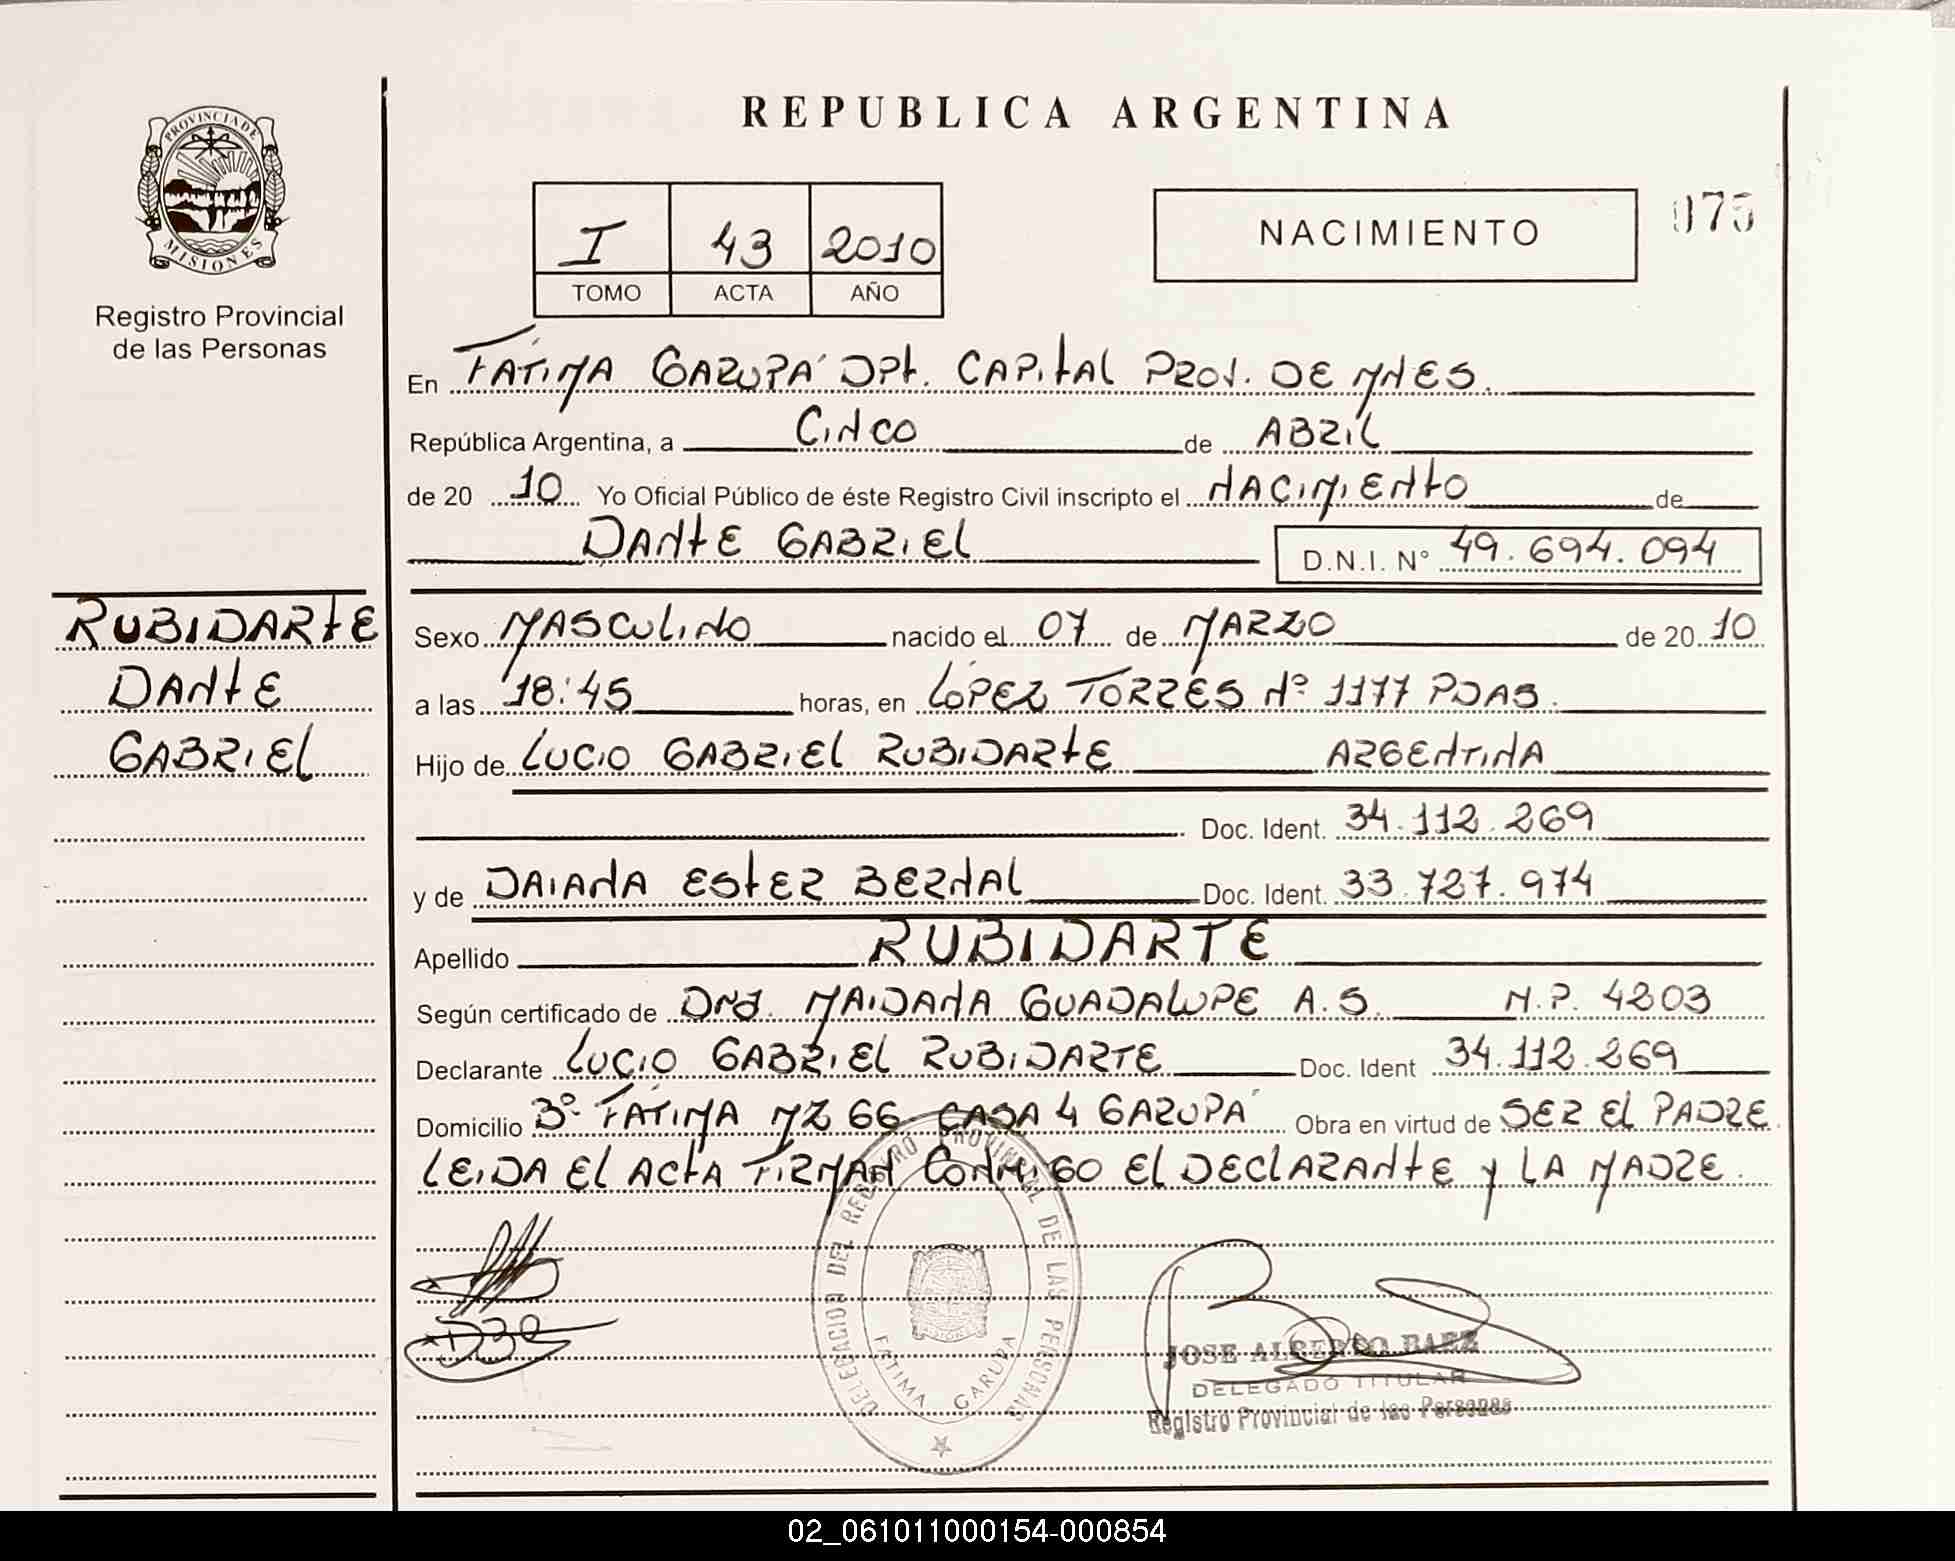 REPUBLICA ARGENTINA
PROVINCIA DE
MISIONES
Registro Provincial
de las Personas
I 43 2010
TOMO ACTA AÑO
NACIMIENTO
075
En FÁTIMA GARUPÁ DPt. CAPITAL PROV. DE MNES.
República Argentina, a CINCO de ABRIL
de 20 10 Yo Oficial Público de éste Registro Civil inscripto el NACIMIENTO de
DANTE GABRIEL D.N.I. N° 49.694.094
RUBIDARTE
DANTE
GABRIEL
Sexo MASCULINO nacido el 07 de MARZO de 20 10
a las 18:45 horas, en LÓPEZ TORRES Nº 1177 PDAS.
Hijo de LUCIO GABRIEL RUBIDARTE ARGENTINA
Doc. Ident. 34.112.269
y de DAIANA ESTER BERNAL Doc. Ident. 33.727.974
Apellido RUBIDARTE
Según certificado de Dra. MAIDANA GUADALUPE A.S. M.P. 4203
Declarante LUCIO GABRIEL RUBIDARTE Doc. Ident 34.112.269
Domicilio Bº FÁTIMA MZ 66 CASA 4 GARUPÁ Obra en virtud de SER EL PADRE
LEIDA EL ACTA FIRMAN CONMIGO EL DECLARANTE Y LA MADRE.
DELEGACION DEL REGISTRO PROVINCIAL DE LAS PERSONAS
FATIMA GARUPA
JOSE ALBERTO BAEZ
DELEGADO TITULAR
Registro Provincial de las Personas
02_061011000154-000854